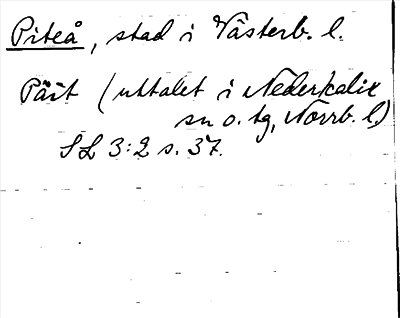 Piteå, stad i Västerb. l.
Päit (uttalet i Nederkalix
sn o. tg, Norrb. l.)
SL 3:2 s. 37.